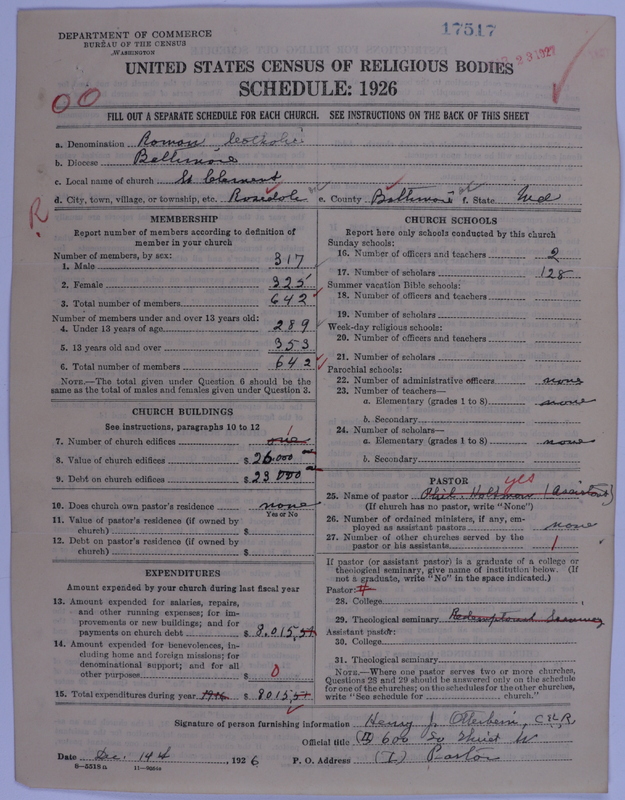 17517
DEPARTMENT OF COMMERCE
BUREAU OF THE CENSUS
WASHINGTON
UNITED STATES CENSUS OF RELIGIOUS BODIES
SCHEDULE: 1926
FILL OUT A SEPARATE SCHEDULE FOR EACH CHURCH. SEE INSTRUCTIONS ON THE BACK OF THIS SHEET
a. Denomination Roman Catholic
b. Diocese Baltimore
c. Local name of church St Clement
d. City, town, village, or township, etc. Rosedale e. County Baltimore f. State Md
R
MEMBERSHIP
Report number of members according to definition of
member in your church
Number of members, by sex:
1. Male 317
2. Female 325
3. Total number of members 642
Number of members under and over 13 years old:
4. Under 13 years of age 289
5. 13 years old and over 353
6. Total number of members 642
NOTE.—The total given under Question 6 should be
the same as the total of males and females given under Question 3.
CHURCH BUILDINGS
See instructions, paragraphs 10 to 12
7. Number of church edifices one 1
8. Value of church edifices $ 26.000
9. Debt on church edifices $ 23 000
10. Does church own pastor's residence none
Yes or No
11. Value of pastor's residence (if owned by
church) $
12. Debt on pastor's residence (if owned by
church) $
EXPENDITURES
Amount expended by your church during last fiscal year
13. Amount expended for salaries, repairs,
and other running expenses; for im-
provements or new buildings; and for
payments on church debt $ 8.015,51
14. Amount expended for benevolences, in-
cluding home and foreign missions; for
denominational support; and for all
other purposes $ 0
15. Total expenditures during year $ 8015,51
CHURCH SCHOOLS
Report here only schools conducted by this church
Sunday schools:
16. Number of officers and teachers 2
17. Number of scholars 128
Summer vacation Bible schools:
18. Number of officers and teachers
19. Number of scholars
Week-day religious schools:
20. Number of officers and teachers
21. Number of scholars
Parochial schools:
22. Number of administrative officers none
23. Number of teachers—
a. Elementary (grades 1 to 8) none
b. Secondary
24. Number of scholars—
a. Elementary (grades 1 to 8) none
b. Secondary
PASTOR
yes
25. Name of pastor Phil. (Assistant)
(If church has no pastor, write "None")
26. Number of ordained ministers, if any, em-
ployed as assistant pastors none
27. Number of other churches served by the
pastor or his assistants 1
If pastor (or assistant pastor) is a graduate of a college or
theological seminary, give name of institution below. (If
not a graduate, write "No" in the space indicated.)
Pastor:
28. College
29. Theological seminary Redemptorist Seminary
Assistant pastor:
30. College
31. Theological seminary
NOTE.—Where one pastor serves two or more churches,
Questions 28 and 29 should be answered only on the schedule
for one of the churches; on the schedules for the other churches,
write "See schedule for church."
Signature of person furnishing information Henry J. Otterbein, C.SS.R.
Official title (II) 600 So Third W
Date Dec. 14th, 1926 P. O. Address (I) Pastor
8-5518a